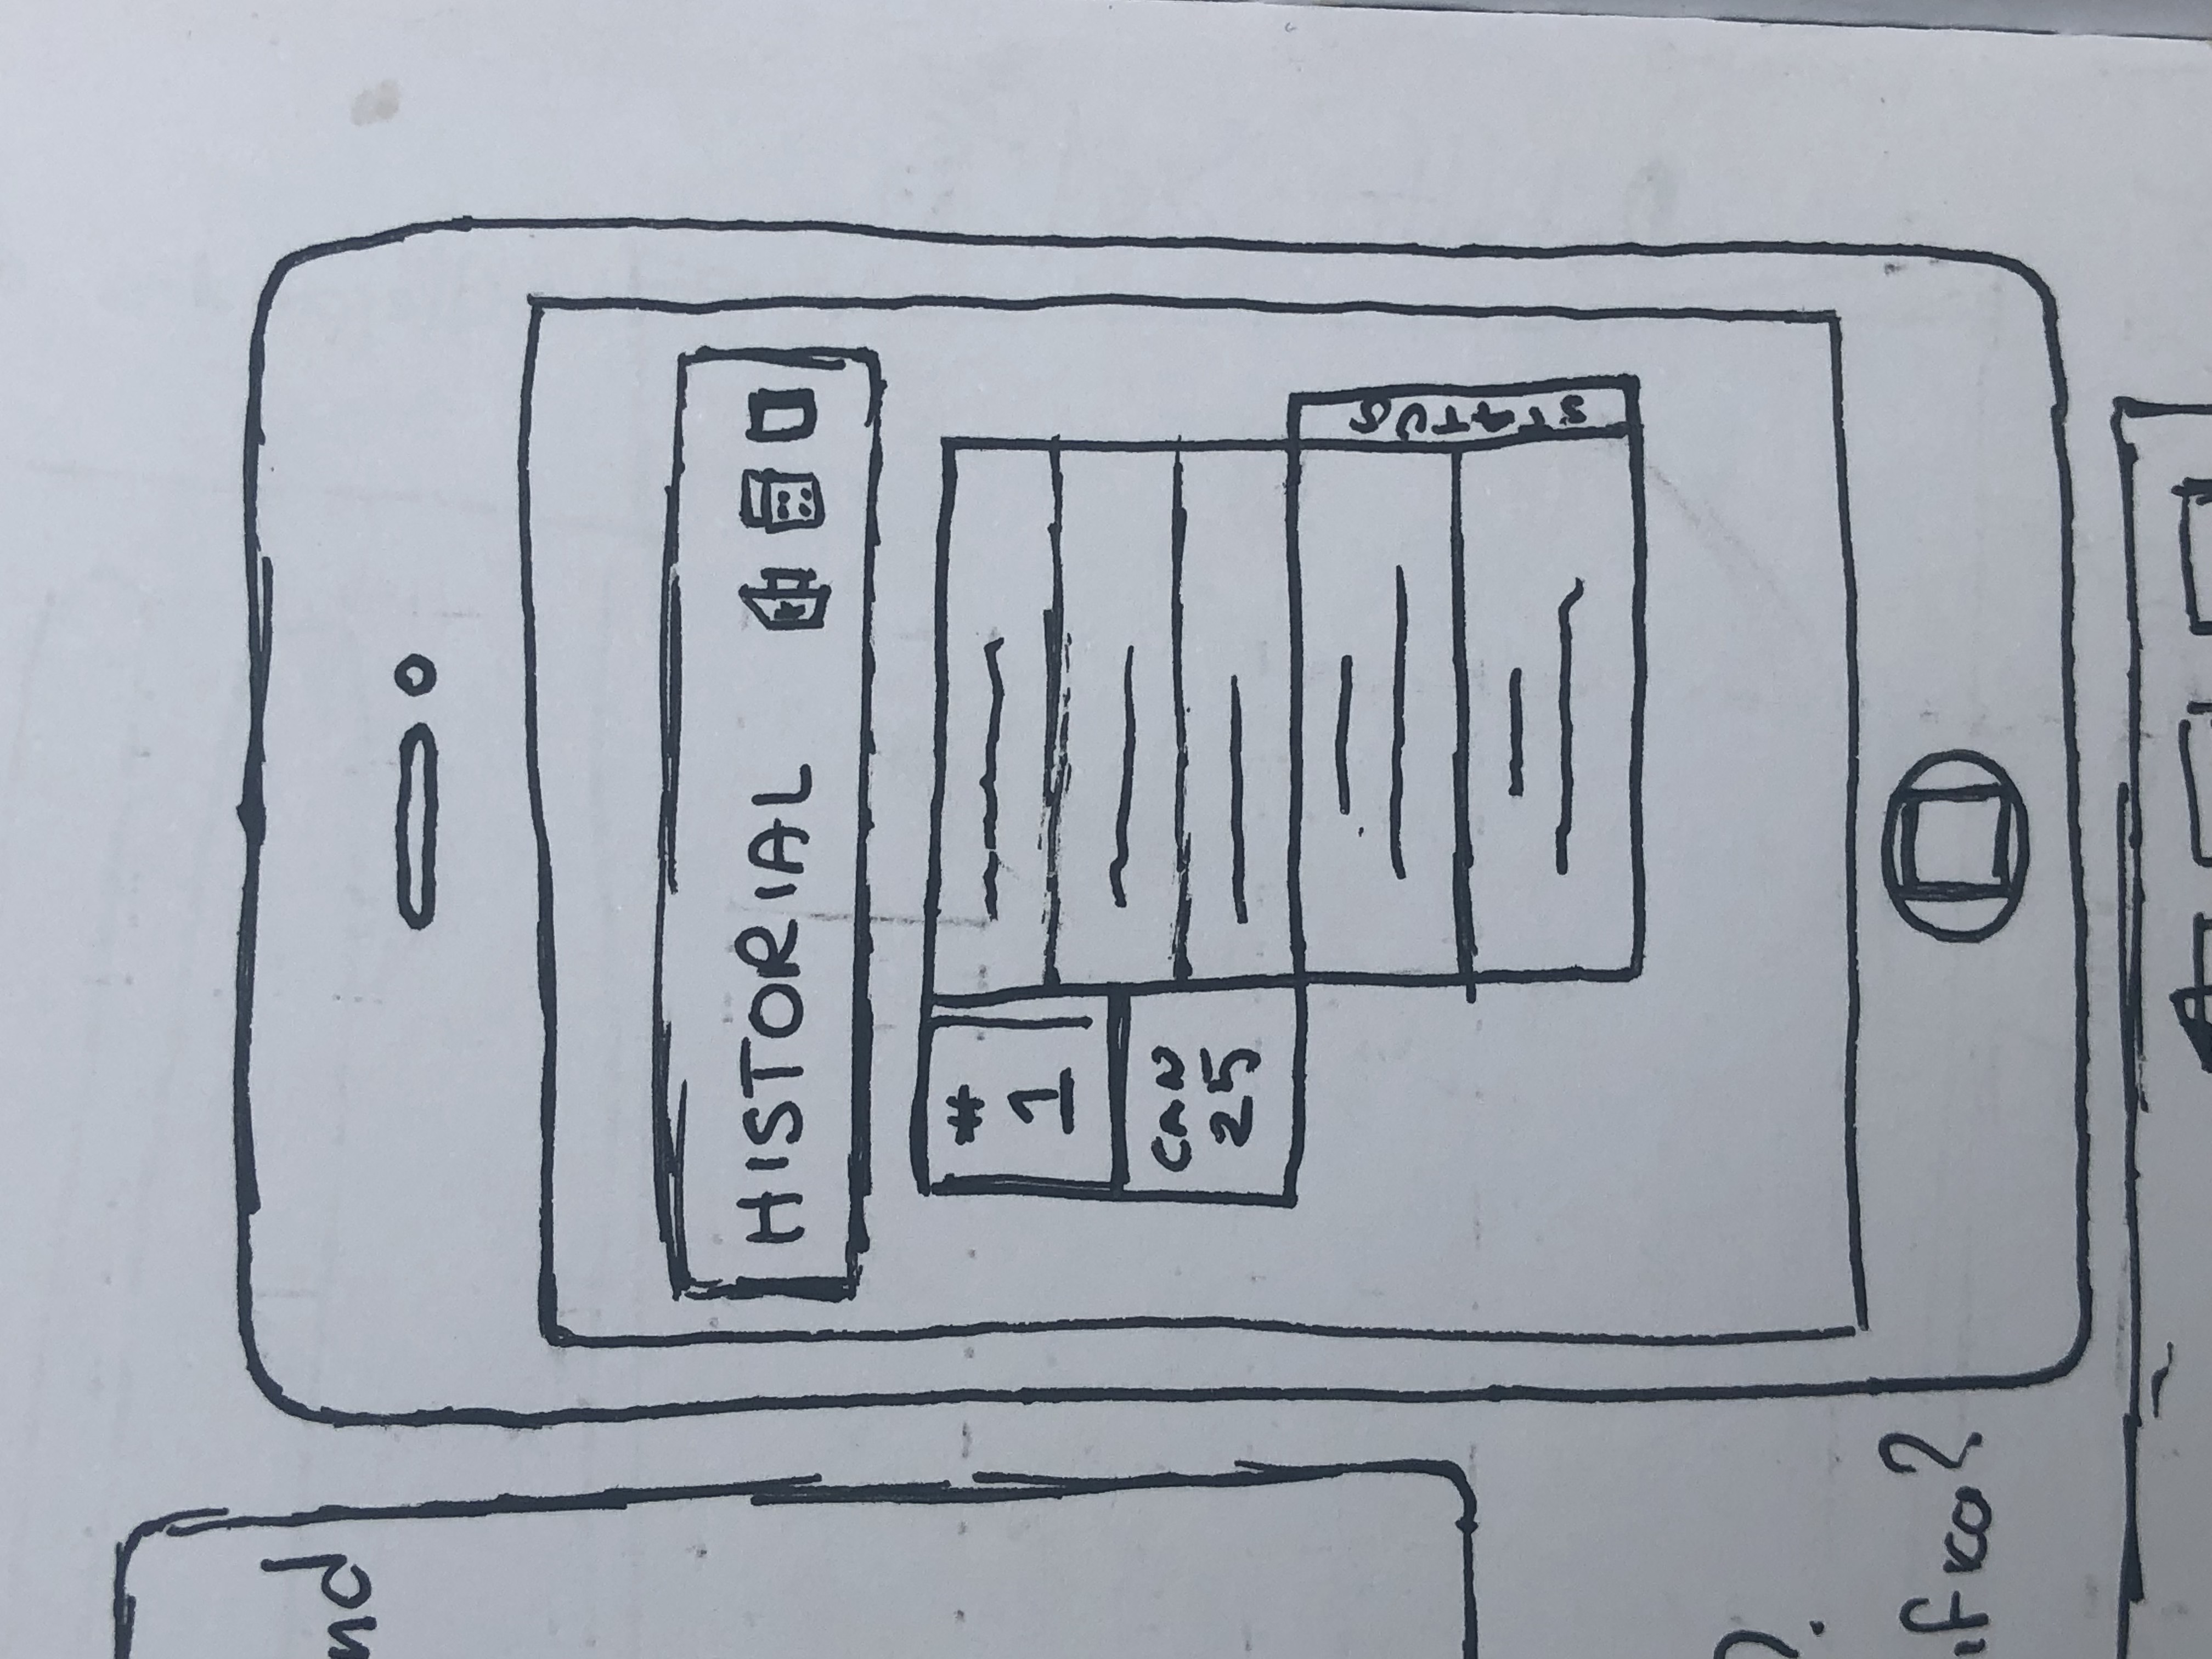 nd
HISTORIAL
#
1
CAN
25
STATUS
?